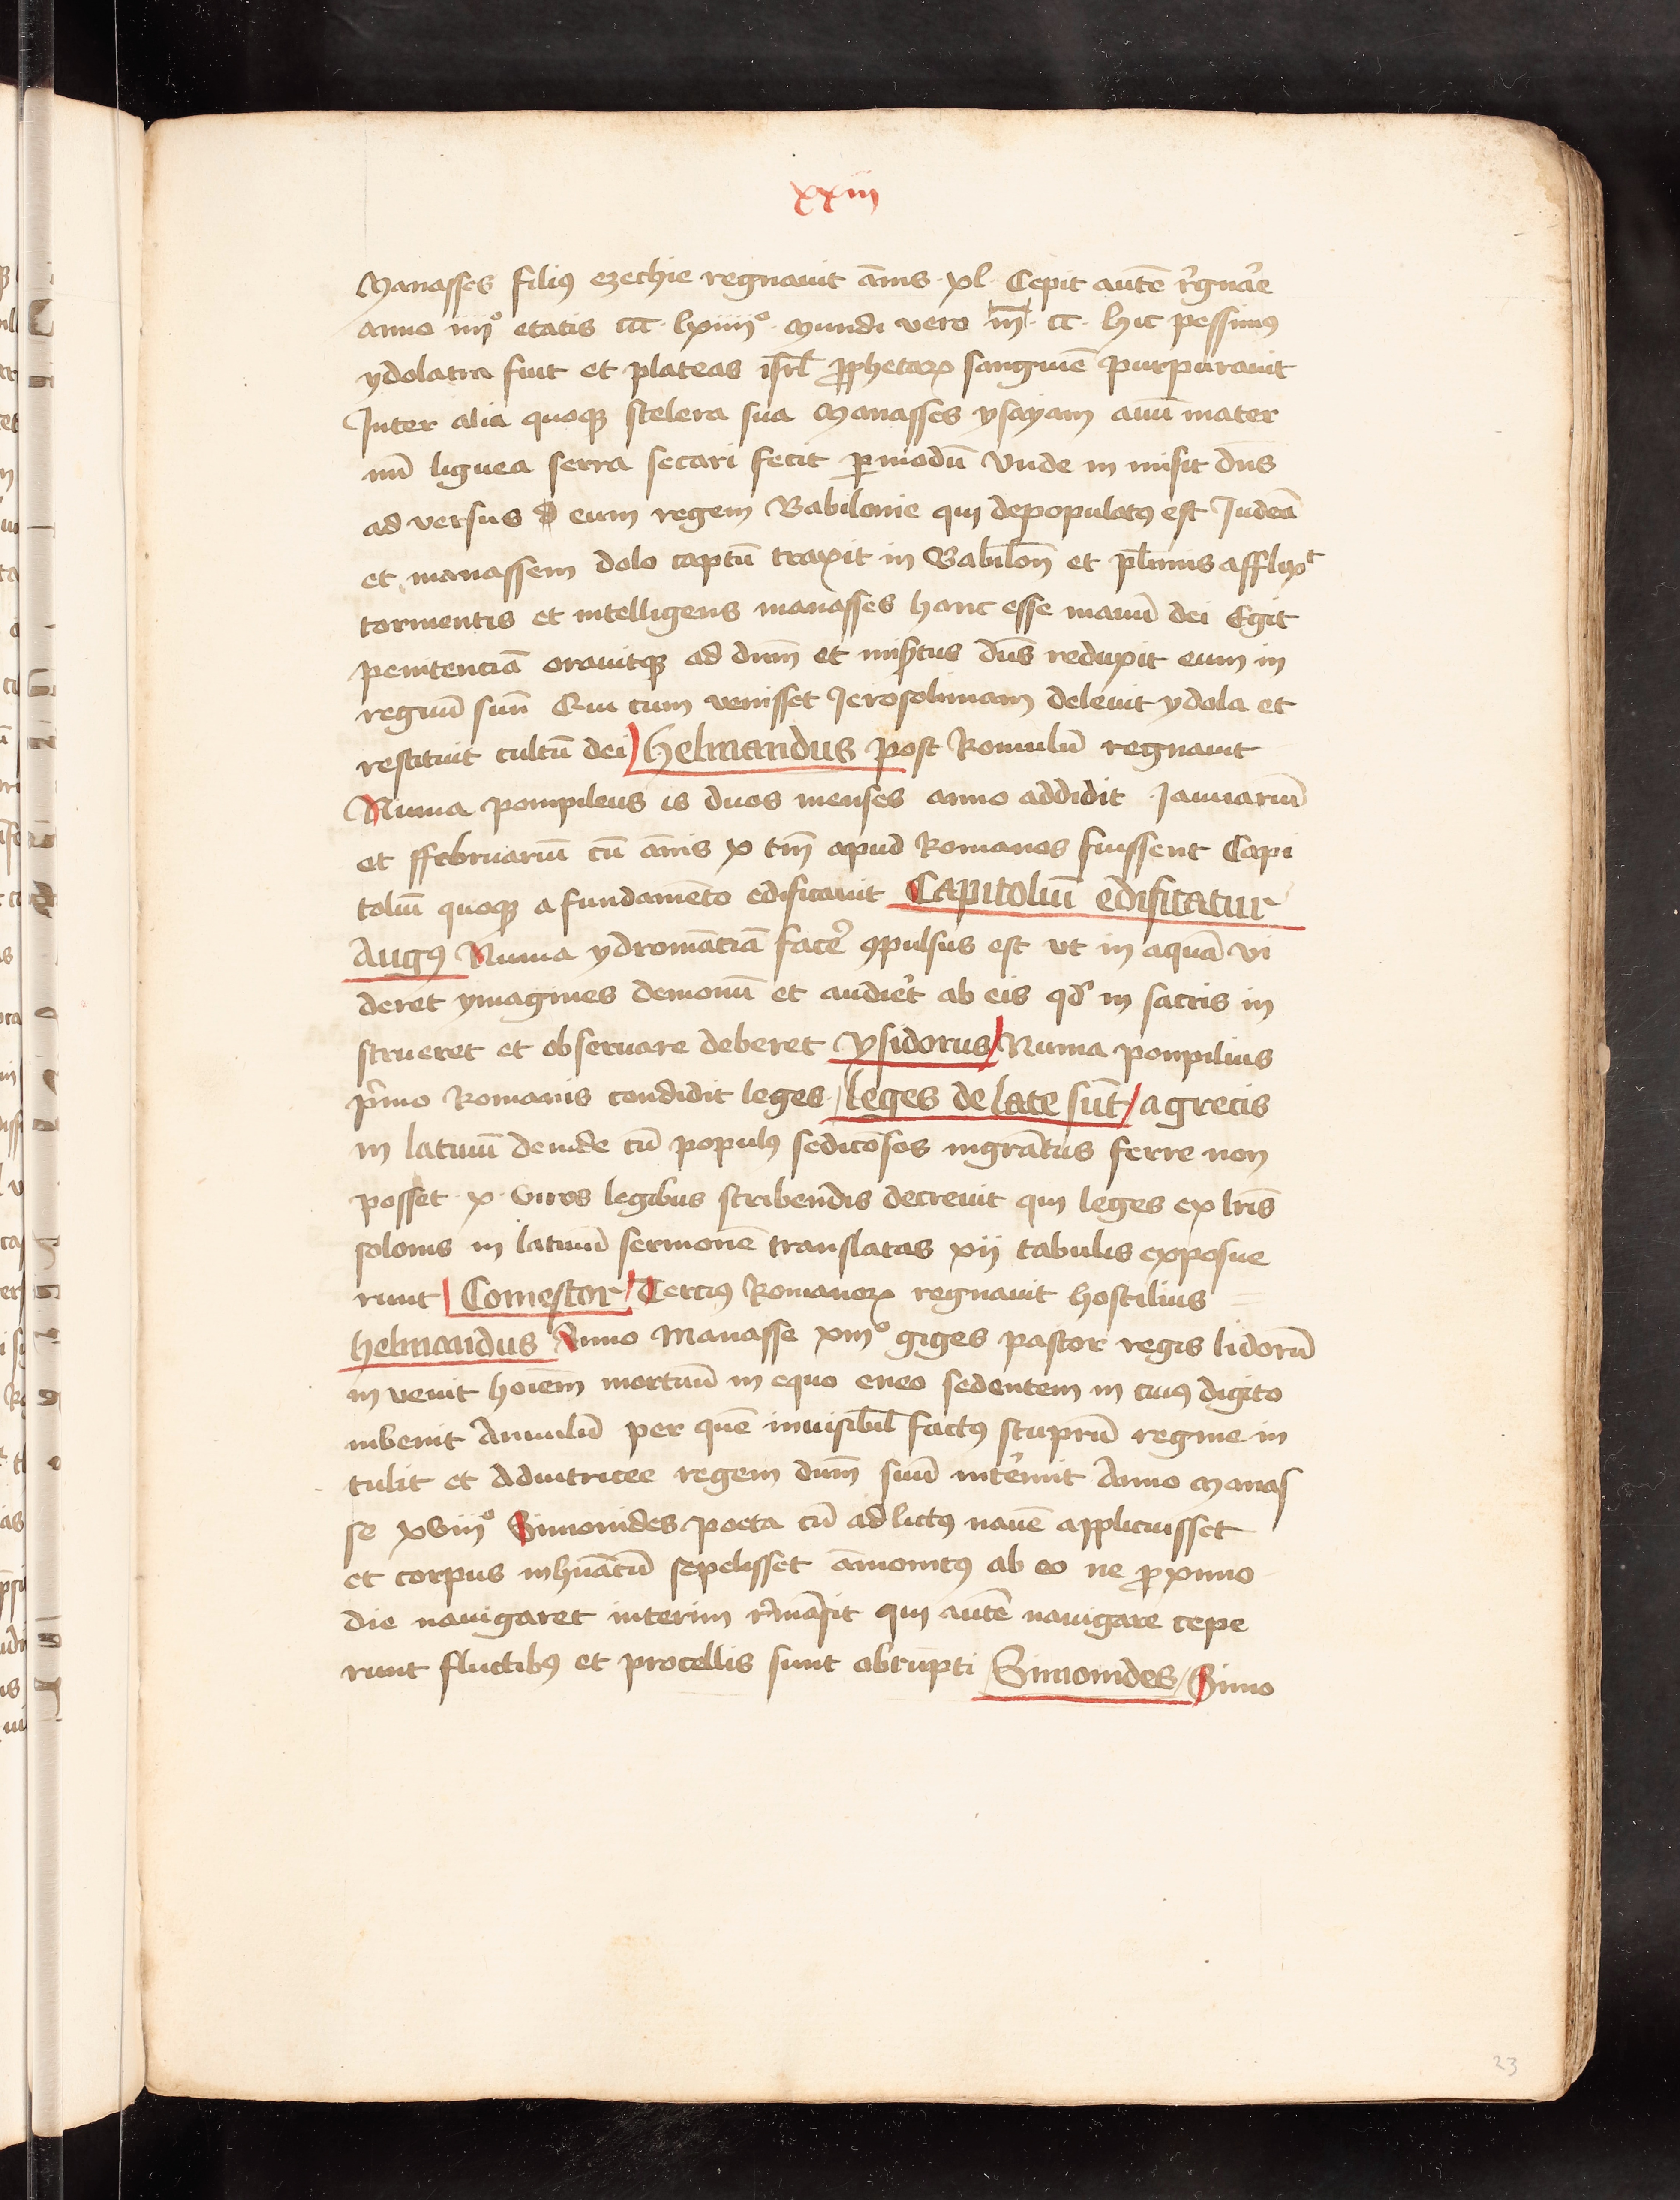 xxiii
Manasses filiꝯ ezechie regnauit ãnis · xl · Cepit autẽ r̃gnar̃e
anno iiijº etatis ccc · lxiiiiº · mundi vero m̃ · cc · hic pessimꝯ
ydolatra fuit et plateas isrl̃ ꝓphetaꝝ sanguinẽ purpurauit
Inter alia quoqꝫ scelera sua Manasses ysayam auũ mater
nũ lignea serra secari fecit ꝑ modũ Vnde in misit dñs
ad versus eum regem Babilonie qui depopulatꝯ est Iudeã
et manassem dolo captũ traxit in Babiloñ et pl̃imis afflixᵗ
tormentis et intelligens manasses hanc esse manũ dei Egit
penitenciã orauitqꝫ ad dñm et misr̃tus dñs reduxit eum in
regnũ suũ Qui cum venisset Ierosolimam deleuit ydola et
restituit cultũ dei helmandus post Romulũ regnauit
Numa pompileus is duos menses anno addidit Ianuariũ
et ffebruariũ cũ ãnis x tm̃ apud Romanos fuissent Capi
toliũ quoqꝫ a fundamẽto edificauit Capitoliũ edificatur
Augꝯ Numa ydromãciã facer̃ ꝯpulsus est vt in aquã vi
deret ymagines demonũ et audier̃t ab eis qd̃ in sacris in
strueret et obseruare deberet ysidorus Numa pompilius
p̃mo Romanis condidit leges leges delate sũt a grecis
in latinũ deinde cũ populꝯ sedicõsos mgrãtus ferre non
posset · x · viros legibus scribendis decreuit qui leges ex lr̃is
solonis in latinũ sermonẽ translatas xij tabulis exposue
runt Comestor Terciꝯ Romanoꝝ regnauit hostilius
helmandus Anno Manasse xiiiº giges pastor regis lidorũ
in venit hoiẽm mortuũ in equo eneo sedentem in cuiꝯ digito
inbenit Annulũ per quẽ inuisibil̃ factꝯ stuprũ regine in
tulit et Adiutricee regem dñm suũ inter̃mit Anno Manas
se xviijº Simonides poeta cũ ad lictꝯ nauẽ applicuisset
et corpus inhũatũ sepelisset ãmonitꝯ ab eo ne ꝓximo
die nauigaret interim r̃mãsit qui autẽ nauigare cepe
runt fluctibꝯ et procellis sunt obrupti Simonides Simo
23